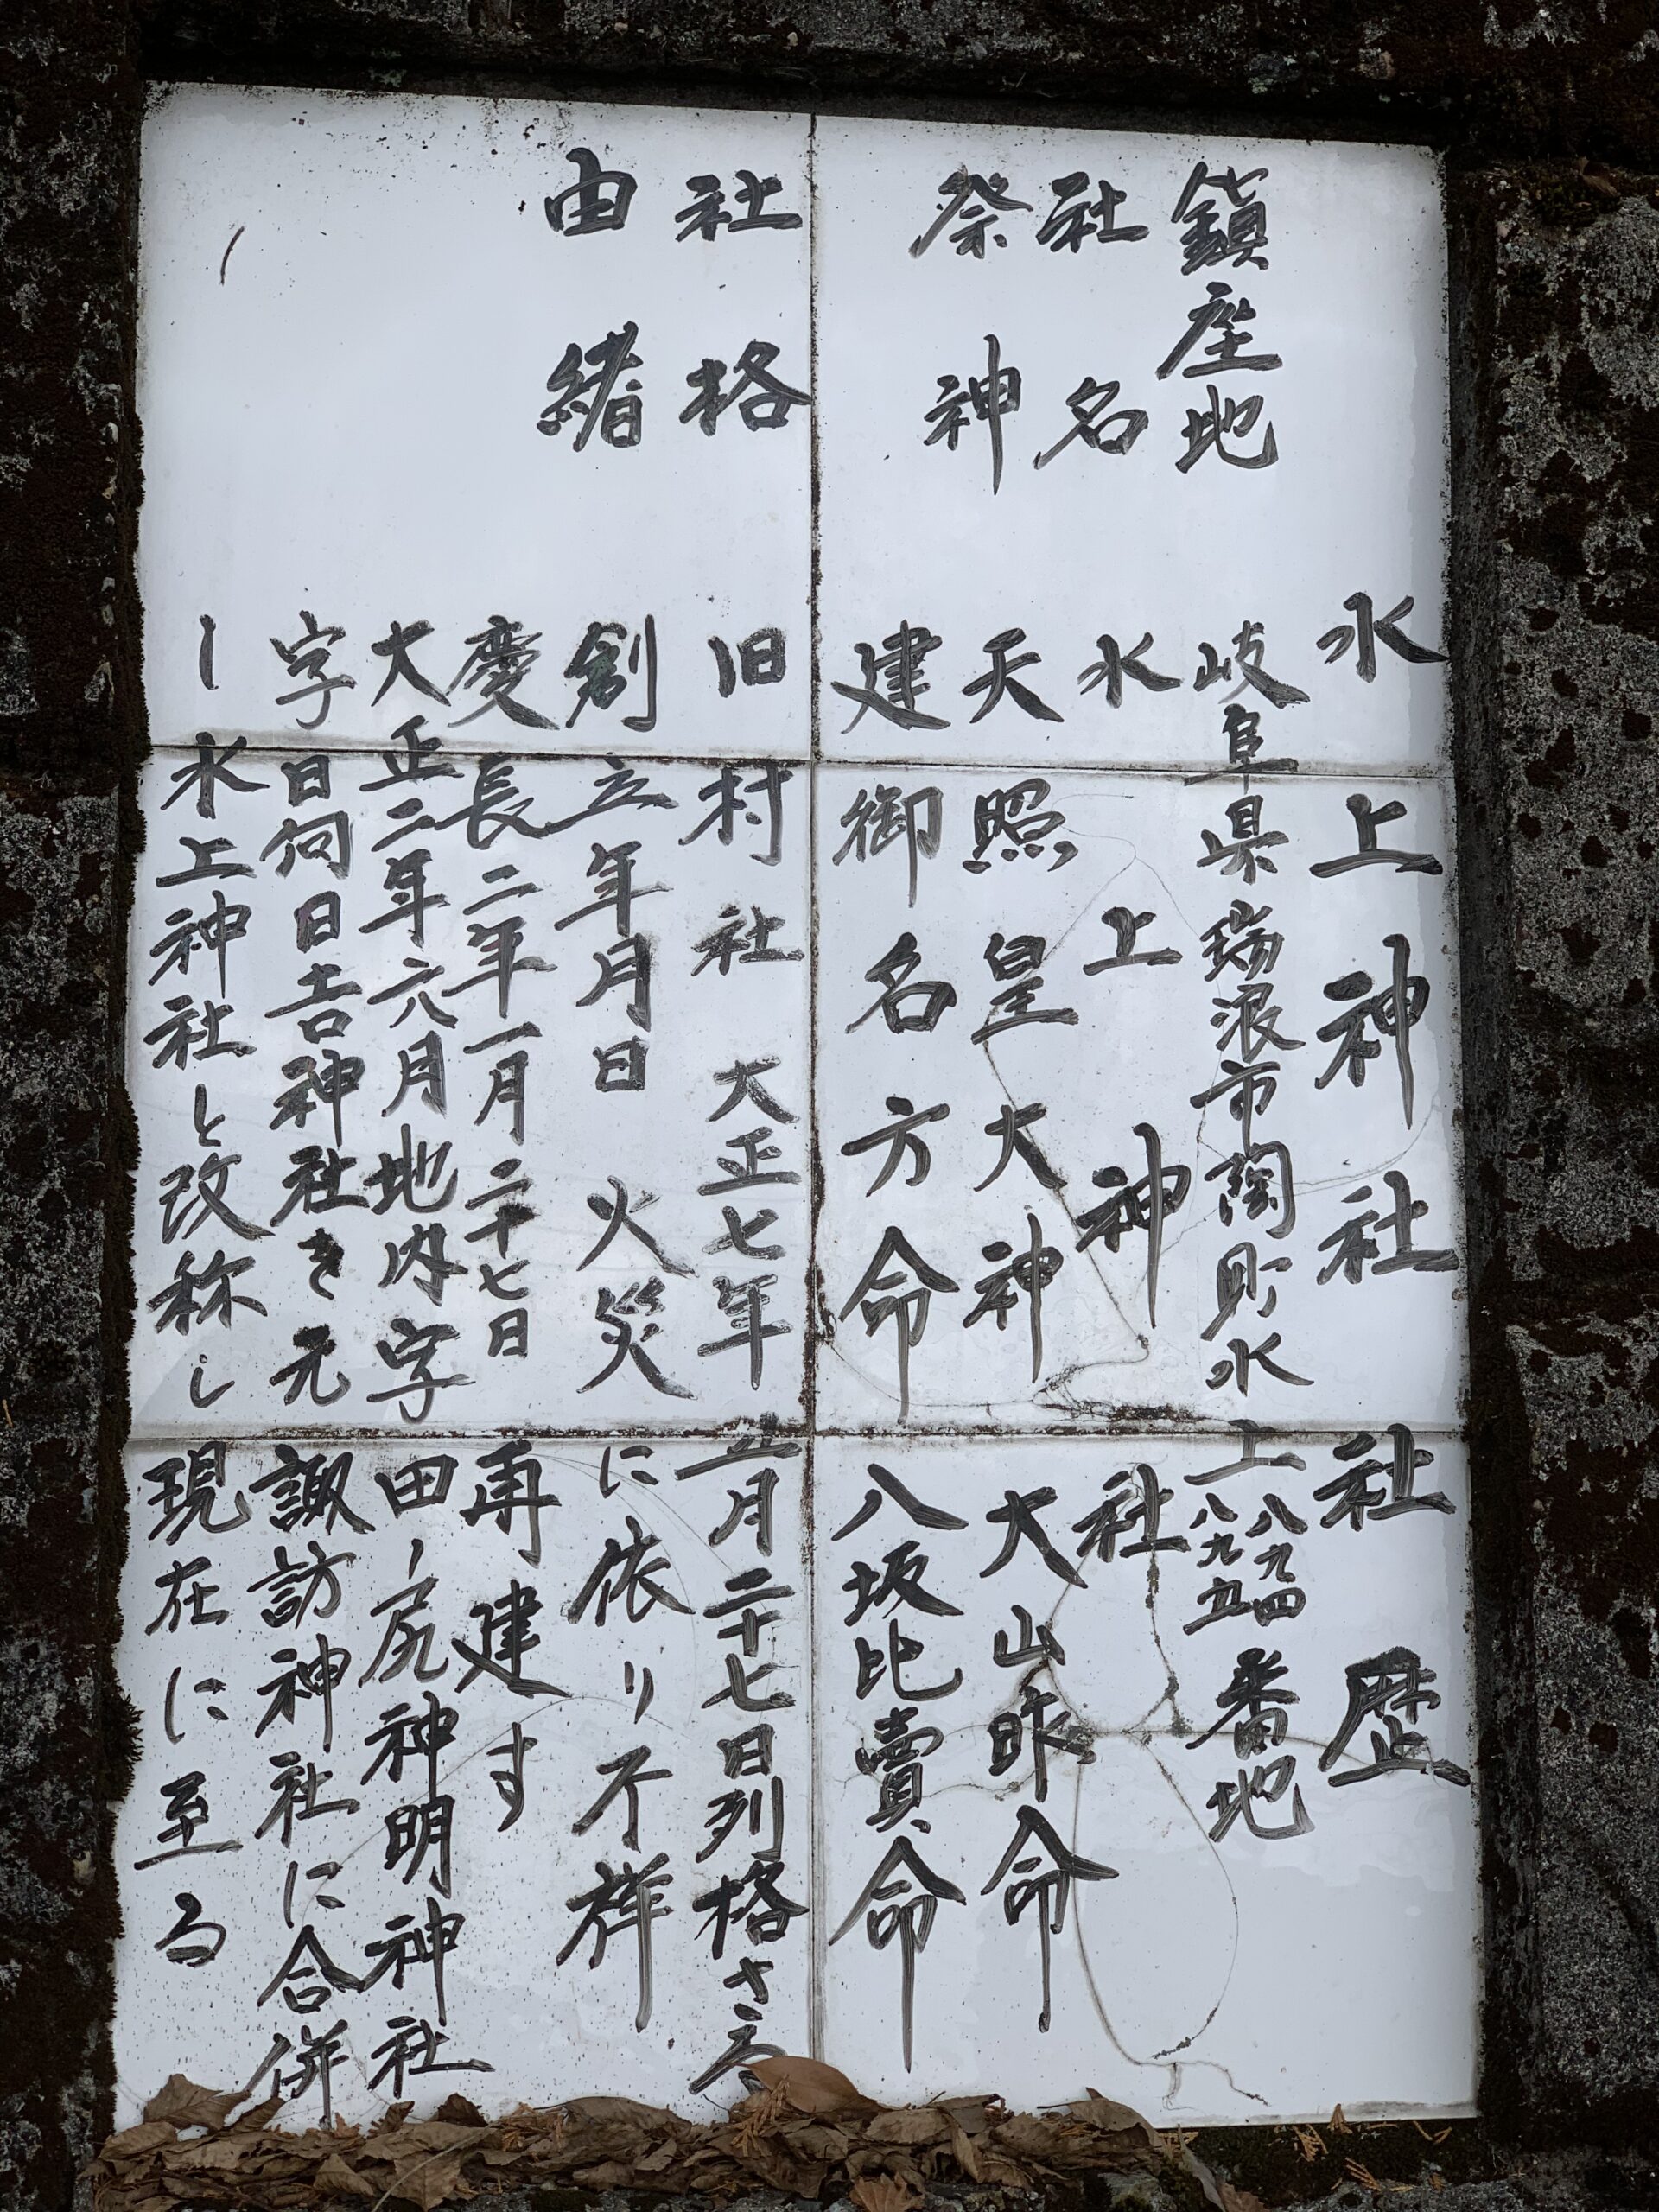 水上神社 社歴
鎮座地 岐阜県瑞浪市陶町水上八九四八九五番地
社名 水上神社
祭神 天照皇大神 大山昨命
建御名方命 八坂比賣命
社格 旧村社 大正七年五月二十七日列格さる
由緒 創立年月日 火災に依り不祥
慶長二年一月二十七日 再建す
大正二年六月地内字田ノ尻神明神社
字日向日吉神社を元諏訪神社に合併
し水上神社と改称し現在に至る